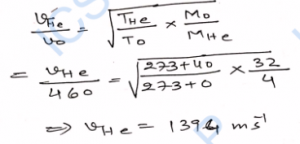 v_He / v_0 = √(T_He / T_0 × M_0 / M_He)
= v_He / 460 = √((273+40) / (273+0) × 32 / 4)
⇒ v_He = 1394 ms⁻¹